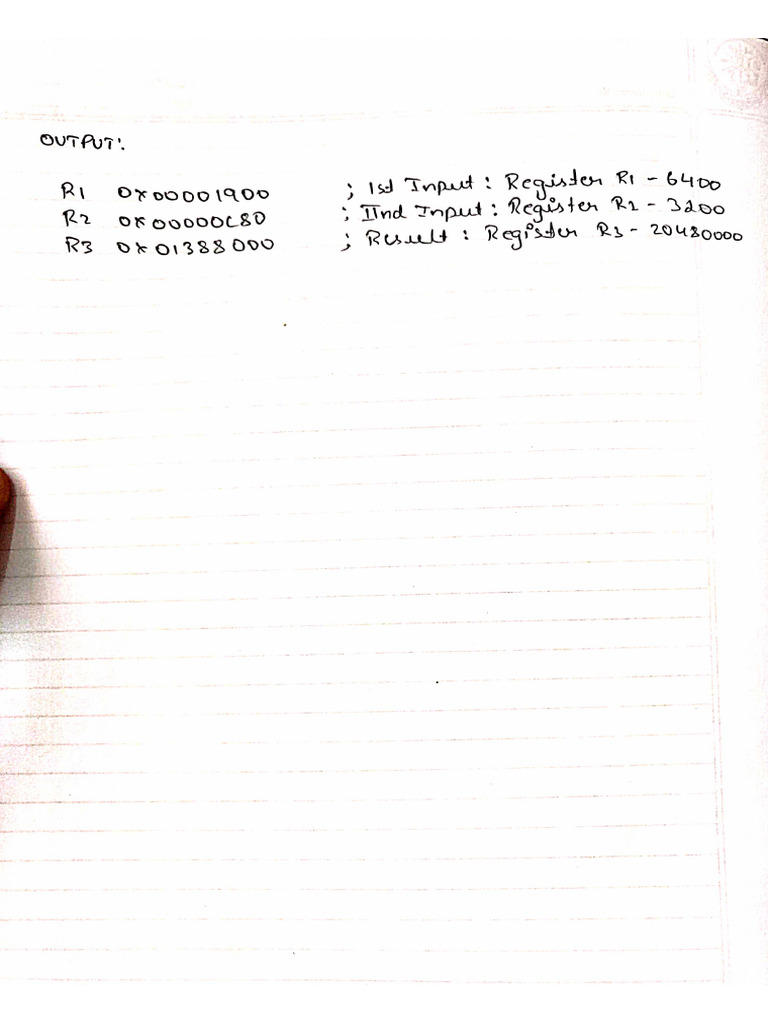 OUTPUT:
R1 0x00001900 ; 1st Input : Register R1 - 6400
R2 0x00000C80 ; IInd Input : Register R2 - 3200
R3 0x01388000 ; Result : Register R3 - 20480000